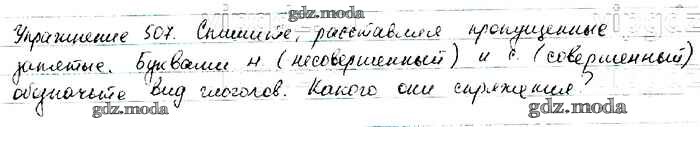 gdz.moda
Упражнение 507. Спишите, расставляя пропущенные
запятые. Буквами н (несовершенный) и с (совершенный)
обозначьте вид глаголов. Какого они спряжения?
gdz.moda
gdz.moda
gdz.moda